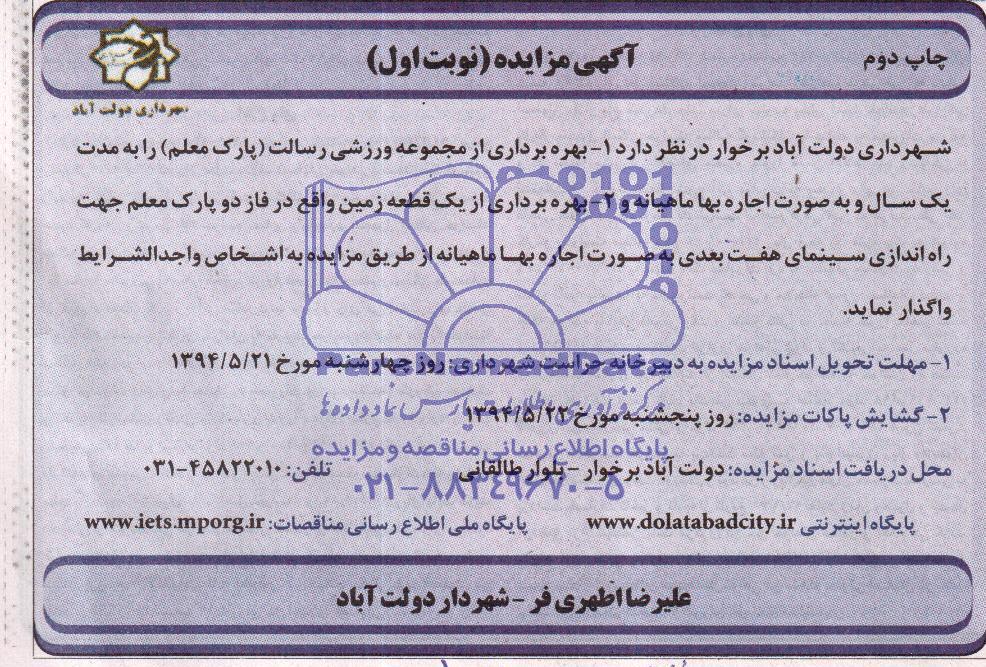 چاپ دوم
آگهی مزایده (نوبت اول)
شهرداری دولت آباد
شهرداری دولت آباد برخوار در نظر دارد ۱- بهره برداری از مجموعه ورزشی رسالت (پارک معلم) را به مدت
یک سال و به صورت اجاره بها ماهیانه و ۲- بهره برداری از یک قطعه زمین واقع در فاز دو پارک معلم جهت
راه اندازی سینمای هفت بعدی به صورت اجاره بها ماهیانه از طریق مزایده به اشخاص واجدالشرایط
واگذار نماید.
۱- مهلت تحویل اسناد مزایده به دبیرخانه حراست شهرداری: روز چهارشنبه مورخ ۱۳۹۴/۵/۲۱
۲- گشایش پاکات مزایده: روز پنجشنبه مورخ ۱۳۹۴/۵/۲۲
پایگاه اطلاع رسانی مناقصه و مزایده
محل دریافت اسناد مزایده: دولت آباد برخوار - بلوار طالقانی تلفن: ۰۳۱-۴۵۸۲۲۰۱۰
۰۲۱-۸۸۳۴۹۶۷۰-۵
پایگاه اینترنتی www.dolatabadcity.ir پایگاه ملی اطلاع رسانی مناقصات: www.iets.mporg.ir
علیرضا اطهری فر - شهردار دولت آباد